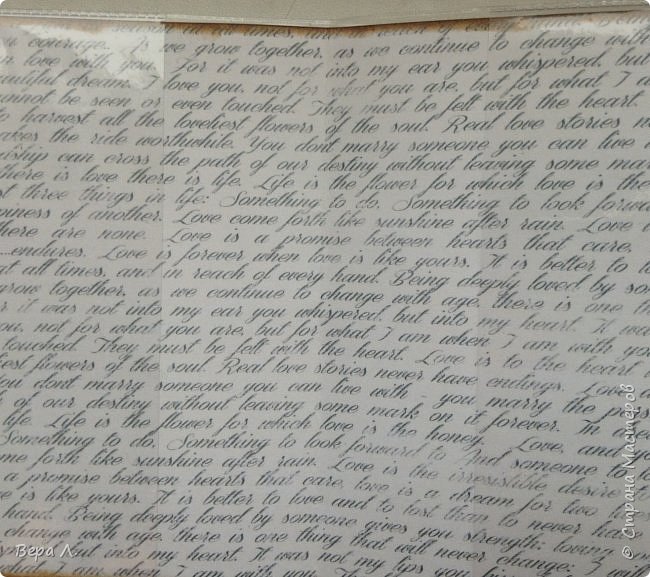 season at all times, and in reach of every hand. Being
u courage... As we grow together, as we continue to change with
n love with you. For it was not into my ear you whispered, but
autiful dream. I love you, not for what you are, but for what I am
annot be seen or even touched. They must be felt with the heart.
to harvest all the loveliest flowers of the soul. Real love stories n
akes the ride worthwhile. You dont marry someone you can live
dship can cross the path of our destiny without leaving some mar
here is love there is life. Life is the flower for which love is the
st three things in life: Something to do. Something to look forwa
piness of another. Love come forth like sunshine after rain. Love
here are none. Love is a promise between hearts that care,
...endures. Love is forever when love is like yours. It is better to l
at all times, and in reach of every hand. Being deeply loved by so
grow together, as we continue to change with age, there is one th
r it was not into my ear you whispered, but into my heart. It wa
ou, not for what you are, but for what I am when I am with yo
touched. They must be felt with the heart. Love is to the heart
liest flowers of the soul. Real love stories never have endings. Love
ou dont marry someone you can live with - you marry the pers
h of our destiny without leaving some mark on it forever. In dee
life. Life is the flower for which love is the honey. Love, and yo
Something to do. Something to look forward to And someone to lo
ome forth like sunshine after rain. Love is the irresistible desire to
a promise between hearts that care, love is a dream for two
e is like yours. It is better to love and to lost than to never ha
hand. Being deeply loved by someone gives you strength; loving
change with age, there is one thing that will never change: I will
but into my heart. It was not my lips you
what I am when I am with you.
Вера Л.
© Страна Мастеров